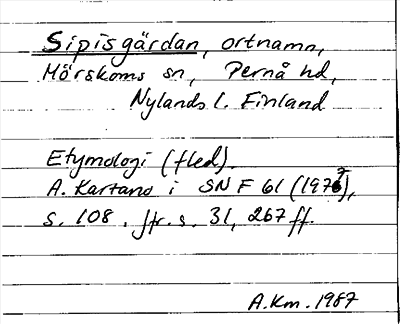 Sipisgärdan, ortnamn,
Mörskoms sn, Pernå hd,
Nylands l. Finland
Etymologi (fled).
A. Kartano i SNF 61 (1973),
s. 108, jfr. s. 31, 267 ff.
A.Km. 1987